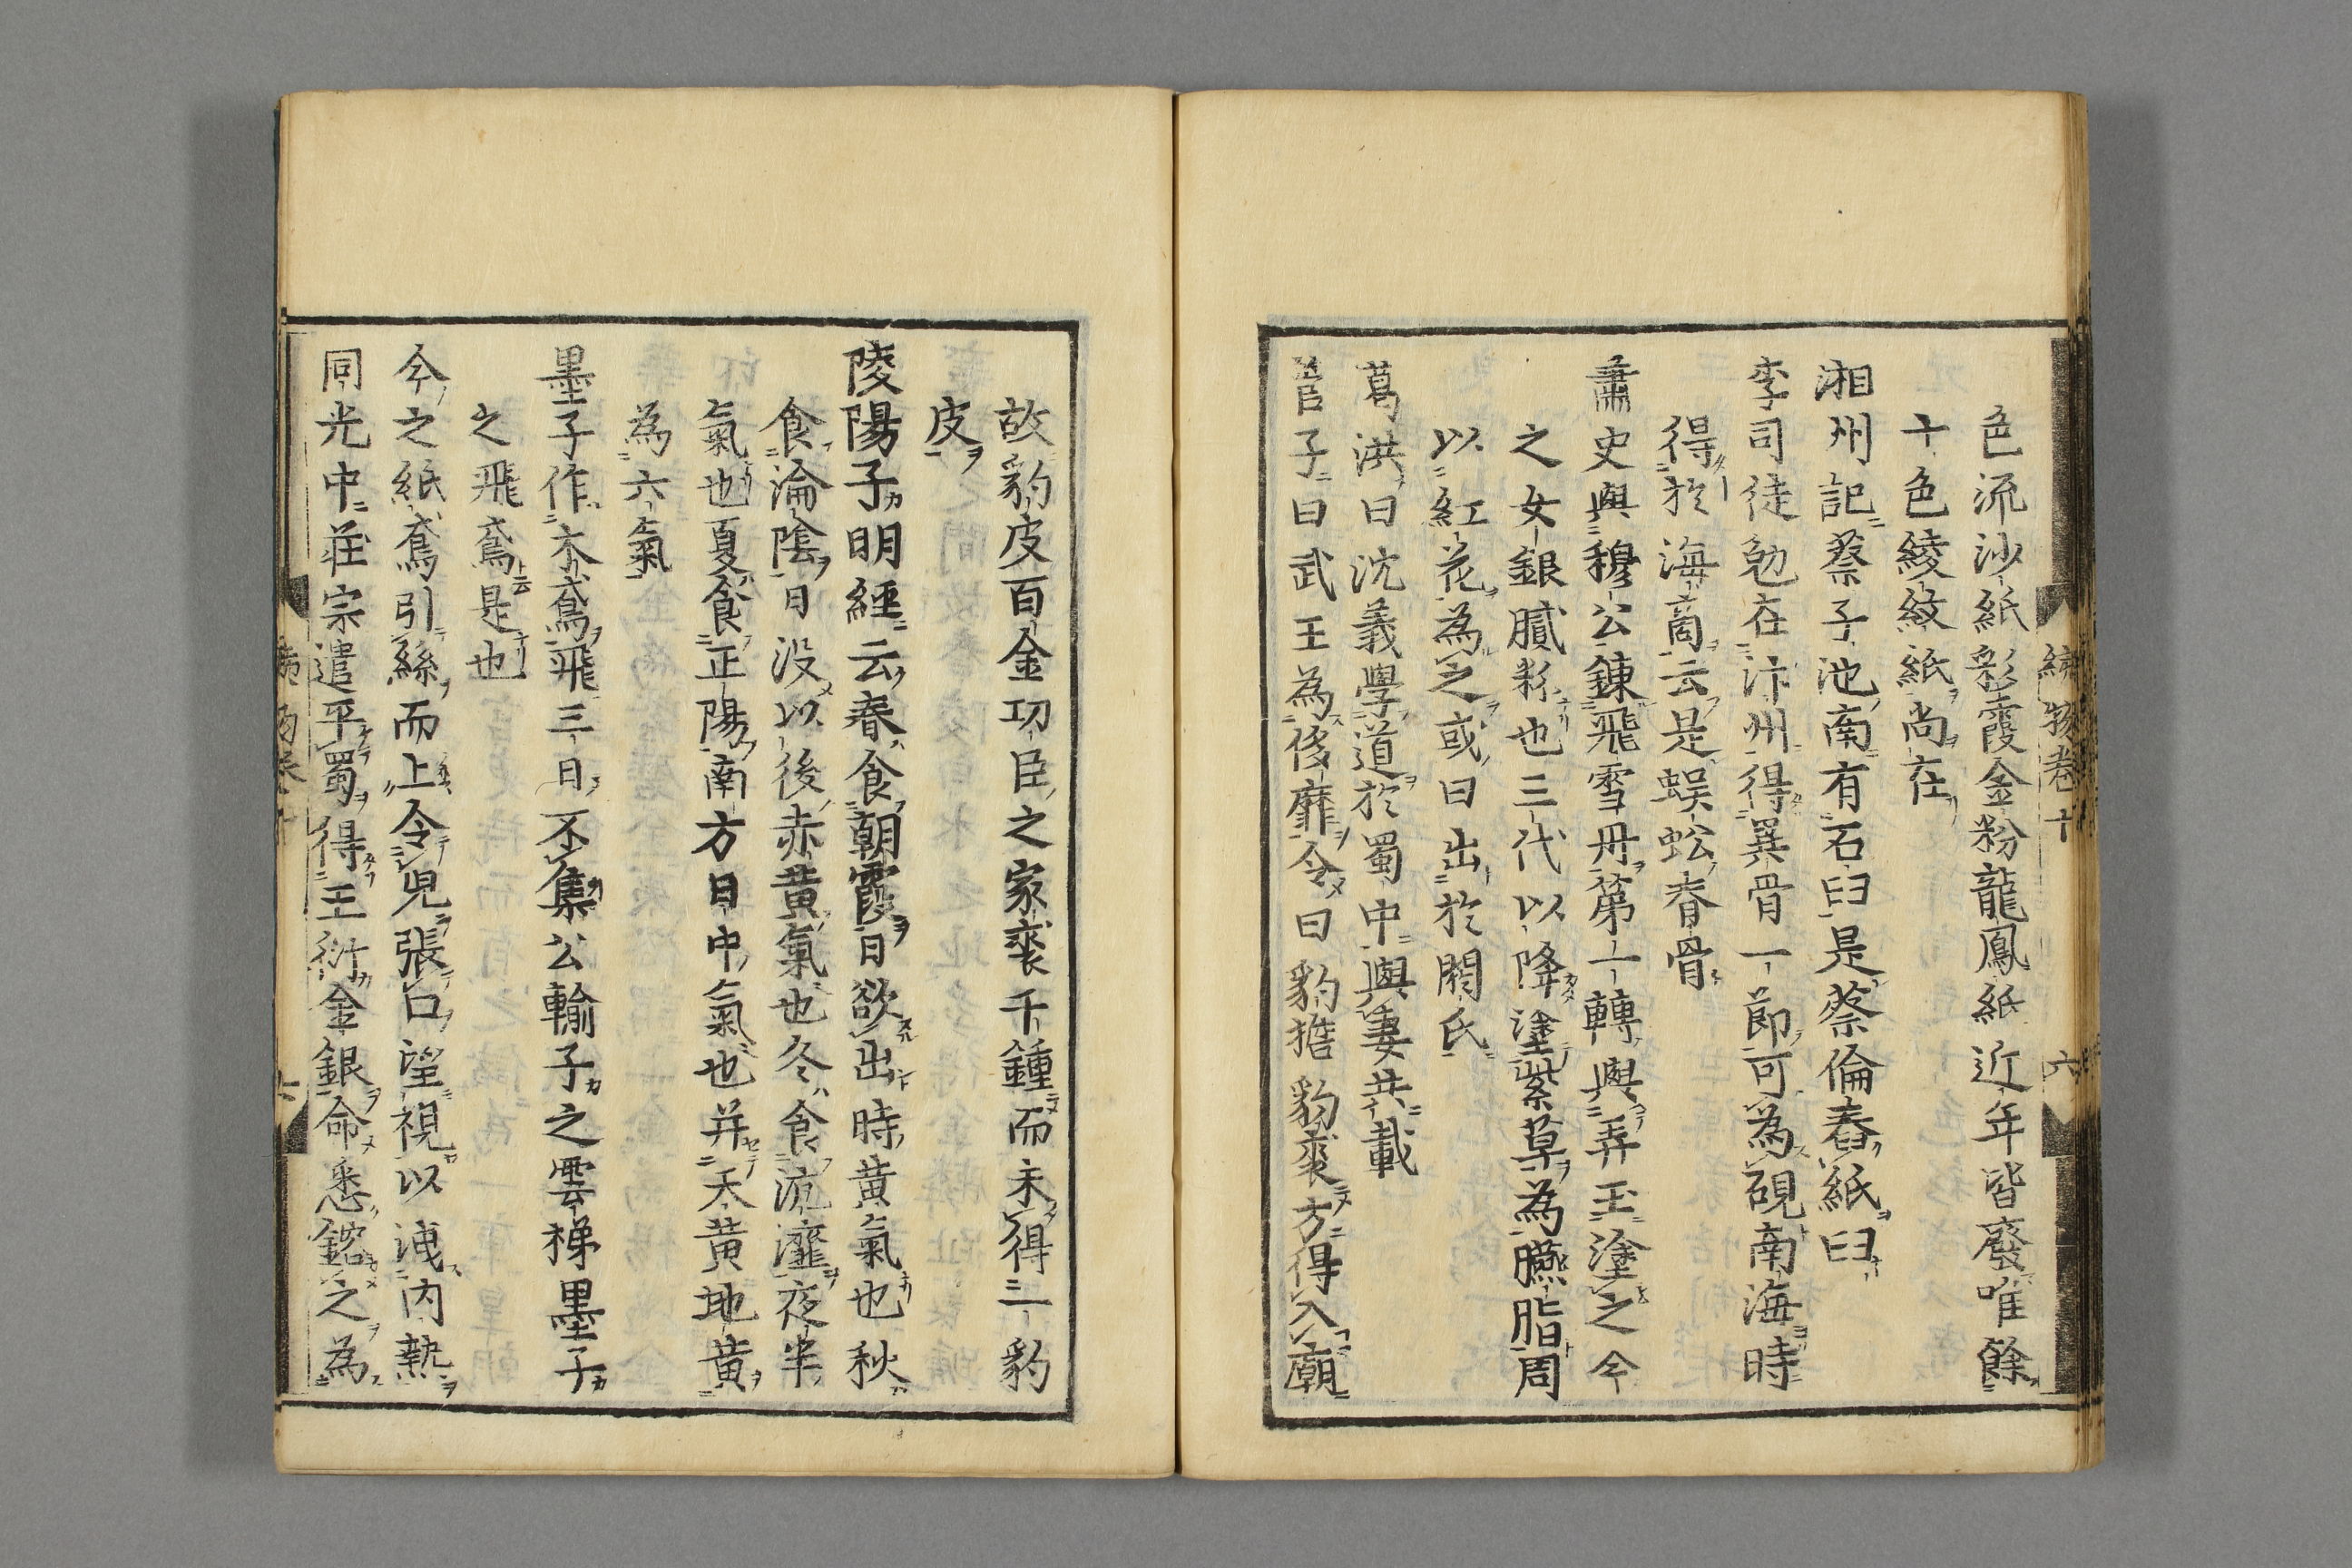 色流沙紙彩霞金粉龍鳳紙近年皆廢唯餘
十色綾紋紙尚在
湘州記蔡子池南有石臼是蔡倫舂紙臼
李司徒勉在汴州得異骨一節可為硯南海時
得於海商云是蜈蚣脊骨
蕭史與穆公鍊飛雪丹第一轉與弄玉塗之今
之女銀膩粉也三代以降塗紫草為臙脂周
以紅花為之或曰出於閼氏
葛洪曰沈羲學道於蜀中與妻共載
管子曰武王為侈靡令曰豹襜豹裘方得入廟
續物卷十
六
故豹皮百金功臣之家裘千鍾而未得一豹
皮
陵陽子明經云春食朝霞日欲出時黄氣也秋
食淪陰日没以後赤黄氣也冬食沆瀣夜半
氣也夏食正陽南方日中氣也并天黄地黄
為六氣
墨子作木鳶飛三日不集公輸子之雲梯墨子
之飛鳶是也
今之紙鳶引絲而上令児張口望視以洩内熱
同光中莊宗遣平蜀得王衍金銀命悉鎔之為